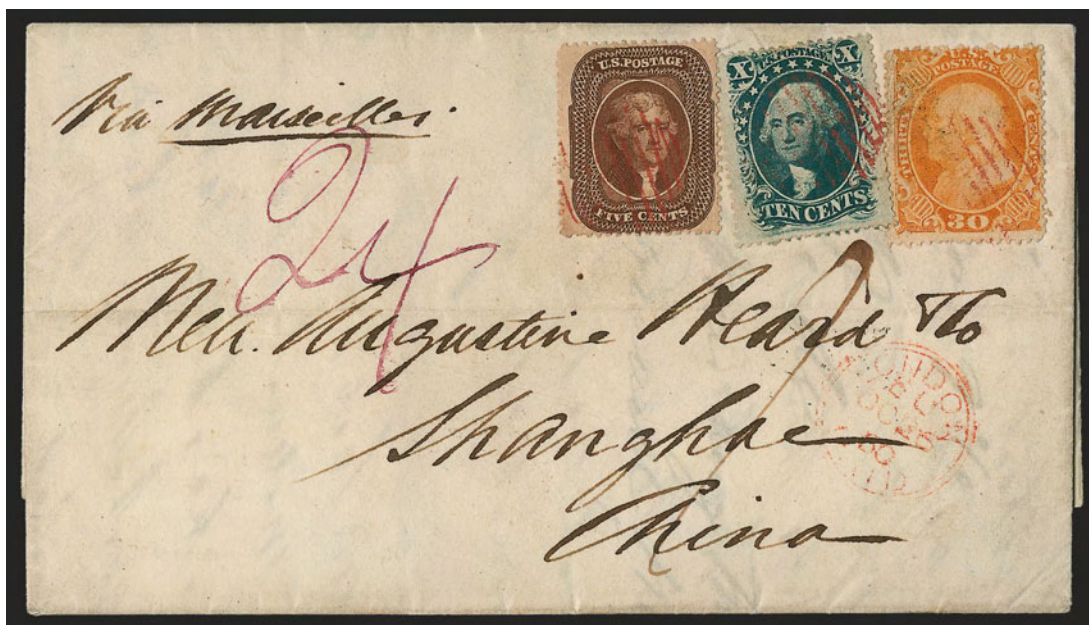 Via Marseilles.
U.S. POSTAGE
FIVE CENTS
X U.S. POSTAGE X
TEN CENTS
U.S.
POSTAGE
THIRTY CENTS
30
24
Augustine Heard & Co
Shanghae
China
LONDON
PAID